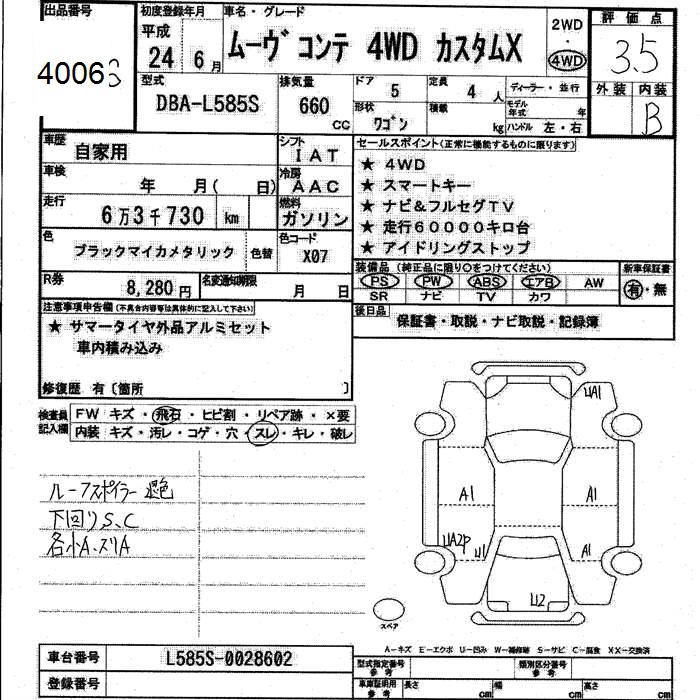 出品番号
初度登録年月
車名・グレード
評価点
平成
24
6月
ムーヴ コンテ 4WD カスタムX
2WD
・
4WD
3.5
4006
外装
内装
B
型式
DBA-L585S
排気量
660
CC
ドア
5
定員
4人
ディーラー・並行
形状
ワゴン
積載
kg
モデル年式
年
ハンドル 左・右
車歴
自家用
シフト
IAT
セールスポイント(正常に機能するものに限ります)
車検
年 月( 日)
冷房
AAC
走行
6万3千730 km
燃料
ガソリン
★ 4WD
★ スマートキー
★ ナビ&フルセグTV
★ 走行60000キロ台
★ アイドリングストップ
色
ブラックマイカメタリック
色替
色コード
X07
装備品(純正品に限り○をつけてください)
新車保証書
PS PW ABS エアB AW
SR ナビ TV カワ
有・無
R券
8,280円
名変通知期限
月 日
後日品
保証書・取説・ナビ取説・記録簿
注意事項申告欄(不具合内容等は具体的に記入して下さい)
★ サマータイヤ外品アルミセット
車内積み込み
修復歴 有〔箇所 〕
検査員記入欄
FW キズ・飛石・ヒビ割・リペア跡・×要
内装 キズ・汚レ・コゲ・穴・スレ・キレ・破レ
ルーフスポイラー 退色
下回りS、C
各小A、スリA
UA1
A1
A1
UA2P
U1
A1
U2
スペア
A-キズ E-エクボ U-凹み W-補修跡 S-サビ C-腐食 XX-交換済
車台番号
L585S-0028602
登録番号
型式指定番号
参考
類別区分番号
参考
車庫証明用
参考
長さ
cm
幅
cm
高さ
cm